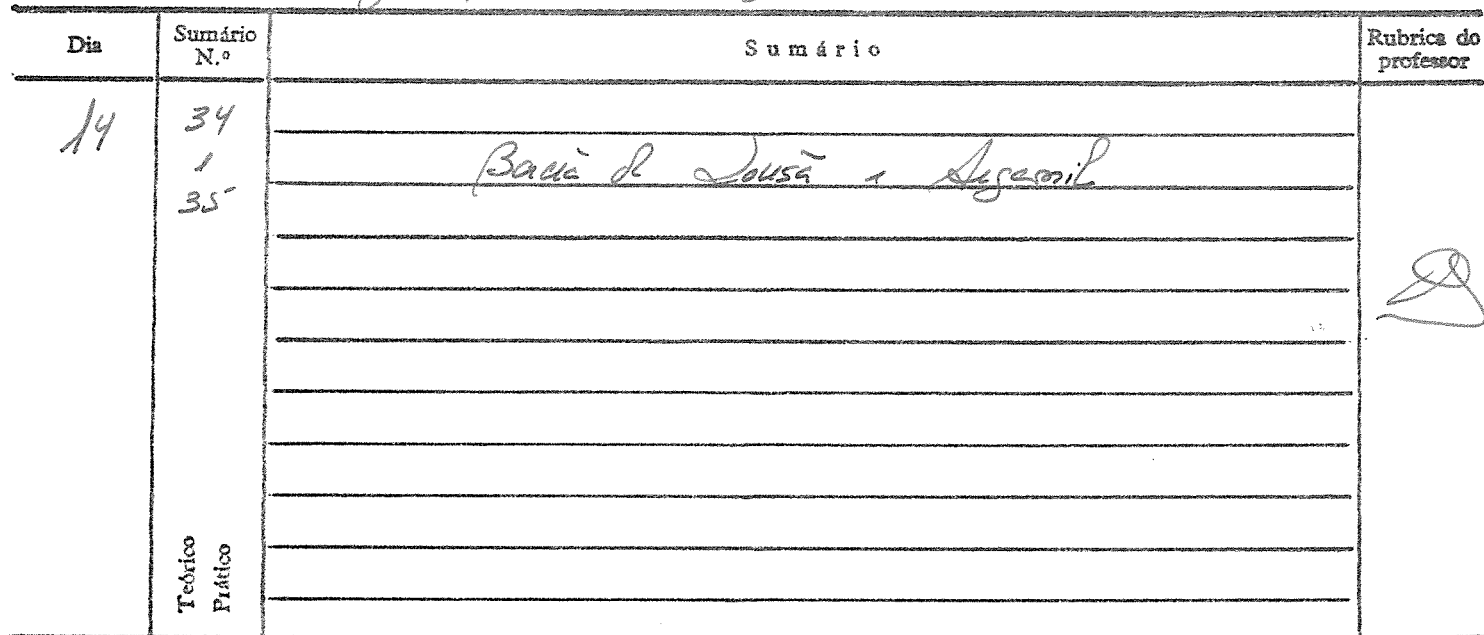 Dia
Sumário N.º
Sumário
Rubrica do professor
14
34
e
35
Bacia de Lousã e Arganil
Teórico
Prático